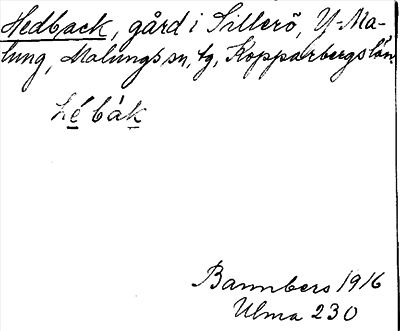 Hedback, gård i Sillerö, Y-Ma-
lung, Malungs sn, tg, Kopparbergs län
hé bák
Bannbers 1916
Ulma 230